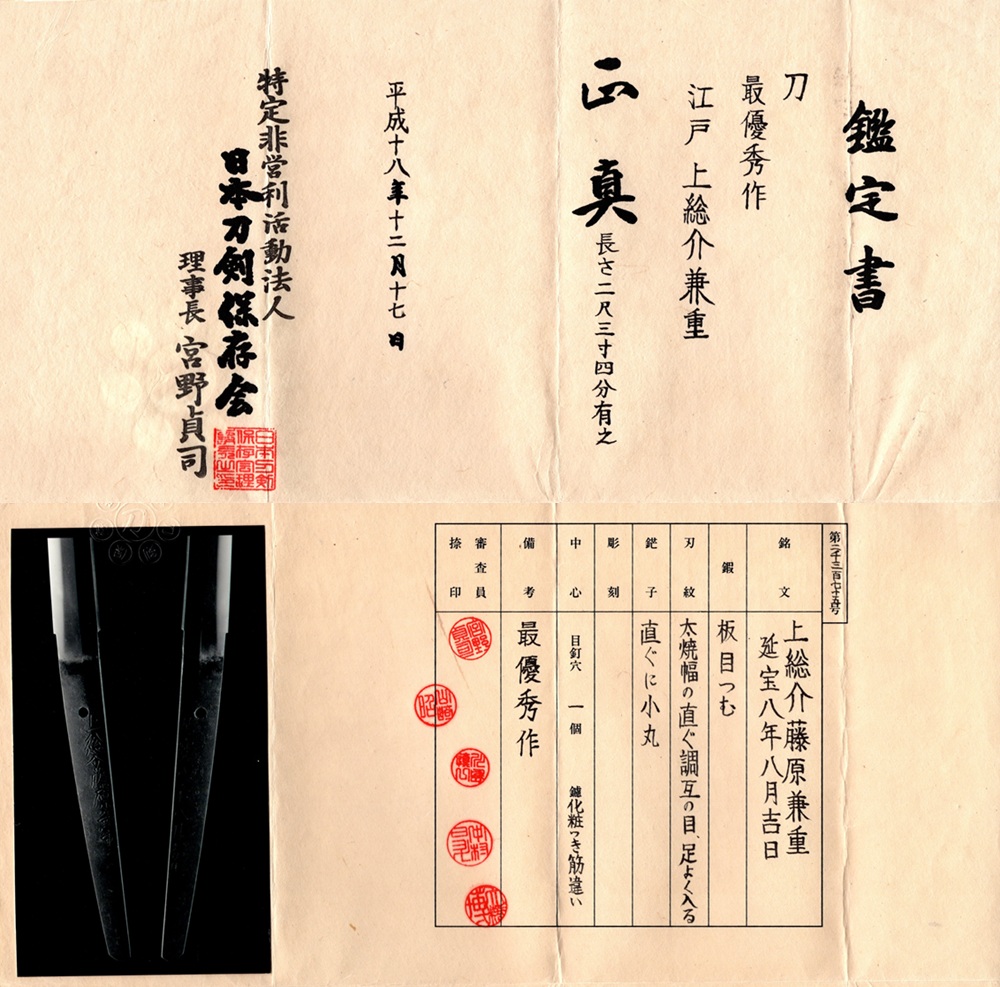 鑑定書
刀
最優秀作
江戸 上総介兼重
正真 長さ二尺三寸四分有之
平成十八年十二月十七日
特定非営利活動法人
日本刀剣保存会
理事長 宮野貞司
第二千三百七十五号
銘文
上総介藤原兼重
延宝八年八月吉日
鍜
板目つむ
刃紋
太焼幅の直ぐ調互の目、足よく入る
鋩子
直ぐに小丸
彫刻
中心
目釘穴 一個 鑢化粧つき筋違い
備考
最優秀作
審査員
捺印